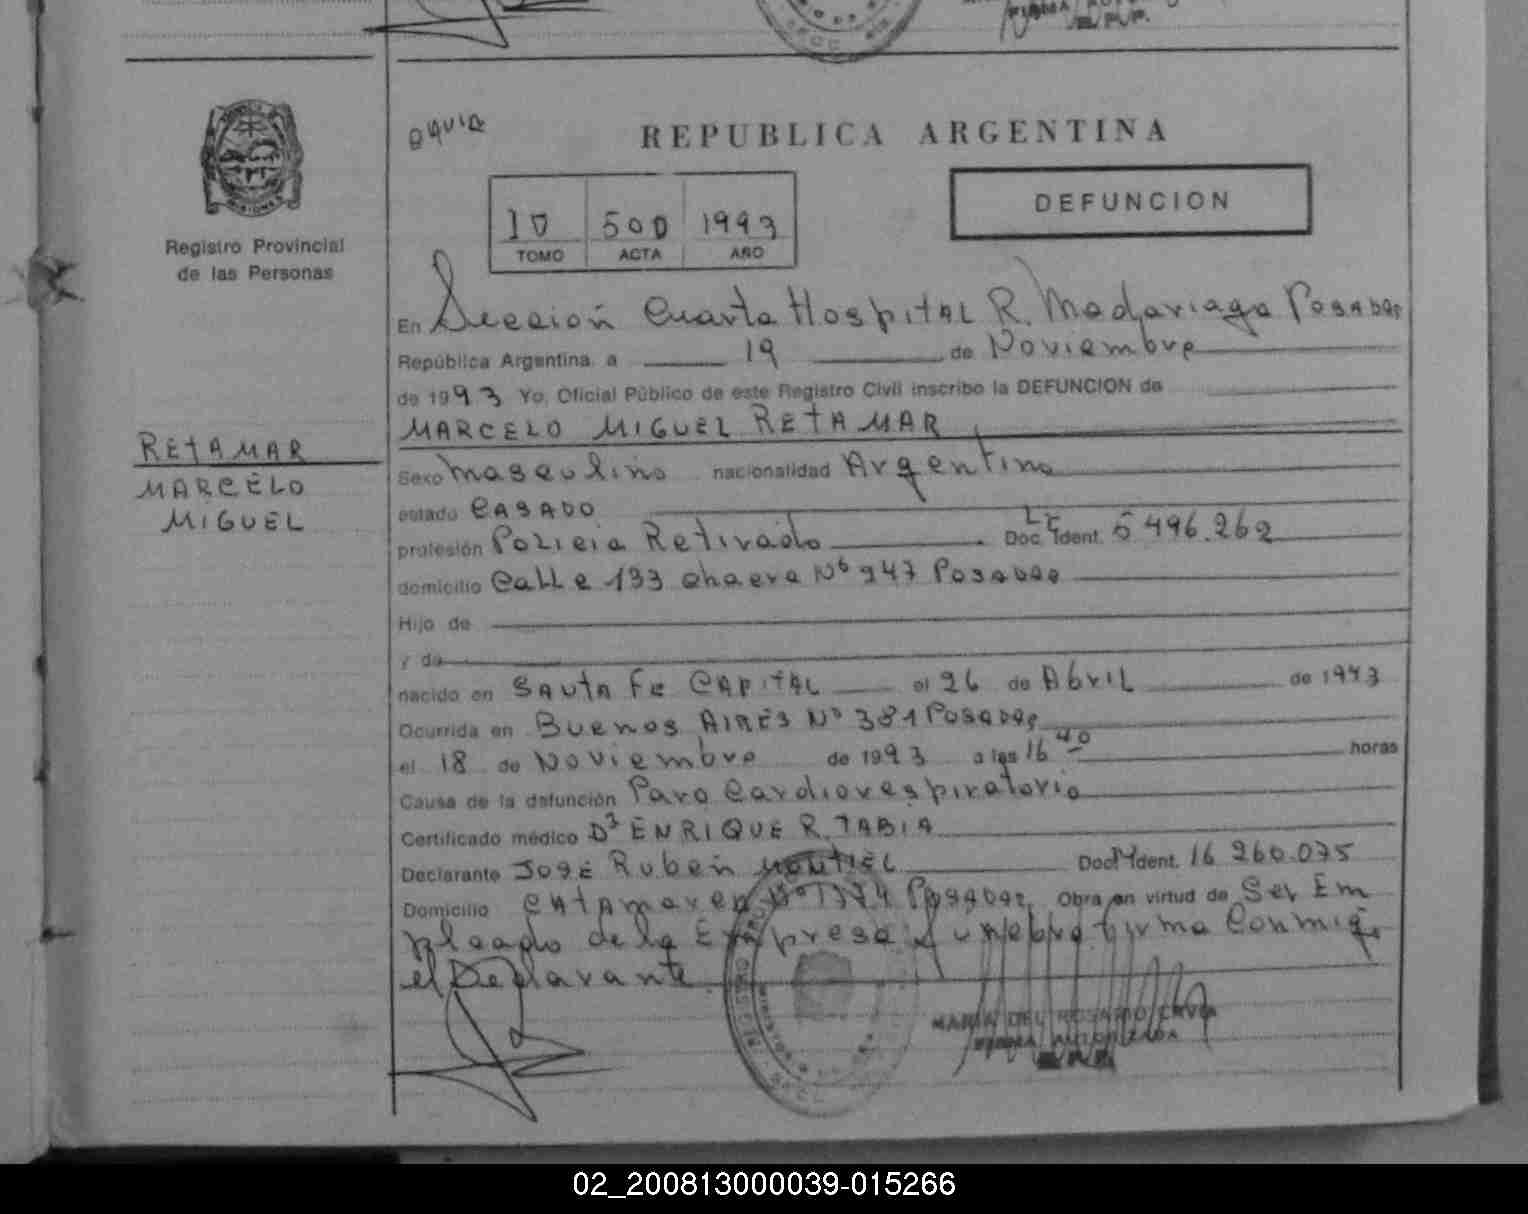 REPUBLICA ARGENTINA
DEFUNCION
10 500 1993
TOMO ACTA AÑO
Registro Provincial
de las Personas
MISIONES
En Sección Cuarta Hospital R. Madariaga Posadas
República Argentina a 19 de Noviembre
de 1993 Yo, Oficial Público de este Registro Civil inscribo la DEFUNCION de
MARCELO MIGUEL RETAMAR
RETAMAR
MARCELO
MIGUEL
Sexo masculino nacionalidad Argentino
estado CASADO
profesión Policia Retirado Doc. Ident. LE 5 496.262
domicilio Calle 133 chacra Nº 947 Posadas
Hijo de
y de
nacido en SANTA FE CAPITAL el 26 de Abril de 1943
Ocurrida en Buenos AIRES Nº 381 Posadas
el 18 de Noviembre de 1993 a las 16 40 horas
Causa de la defunción Paro Cardiorespiratorio
Certificado médico Dr ENRIQUE R. TABIA
Declarante JOSE Ruben MONTIEL Doc. Ident. 16 260.075
Domicilio CATAMARCA Nº Posadas Obra en virtud de Ser Em
pleado de la Empresa firma Conmigo
el Declarante.
MARIA DEL ROSARIO
FIRMA AUTORIZADA
R.P.P.
02_200813000039-015266